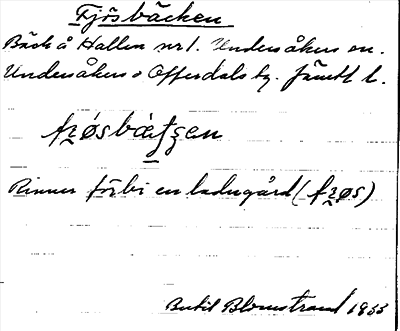 Fjösbäcken
Bäck å Hallen nr 1. Undersåkers sn.
Undersåkers o Offerdals tg. Jämtl l.
fʒøsbæʈʂen
Rinner förbi en ladugård (fʒøs)
Bertil Blomstrand 1933